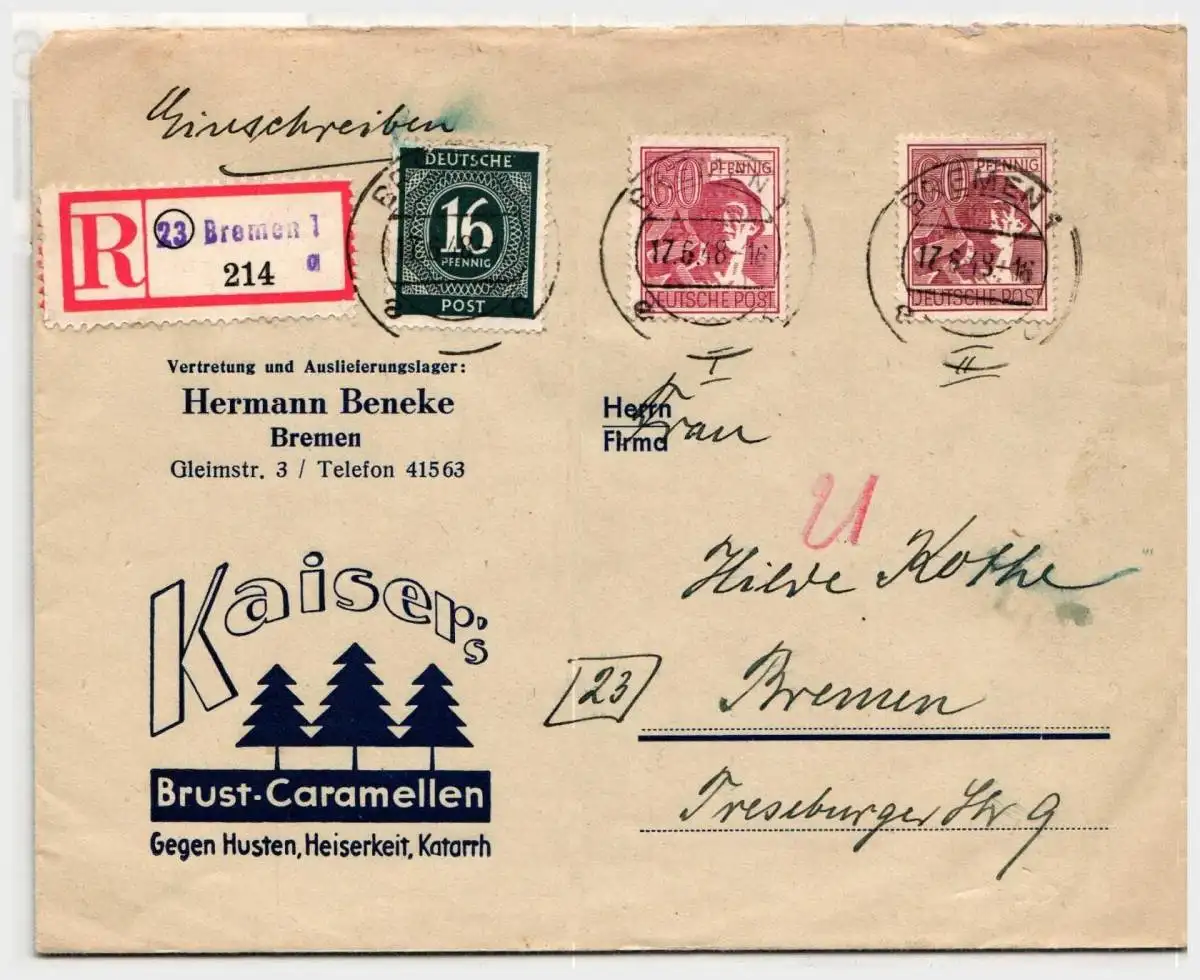 Einschreiben
R
23 Bremen 1
a
214
DEUTSCHE
16
PFENNIG
POST
60 PFENNIG
DEUTSCHE POST
BREMEN 1
17.6.48-16
e
60 PFENNIG
DEUTSCHE POST
BREMEN 1
17.6.48-16
e
I
II
Vertretung und Auslieferungslager:
Hermann Beneke
Bremen
Gleimstr. 3 / Telefon 41563
Herrn
Frau
Firma
U
Hilde Kothe
(23) Bremen
Treseburger Str 9
Kaiser's
Brust-Caramellen
Gegen Husten, Heiserkeit, Katarrh